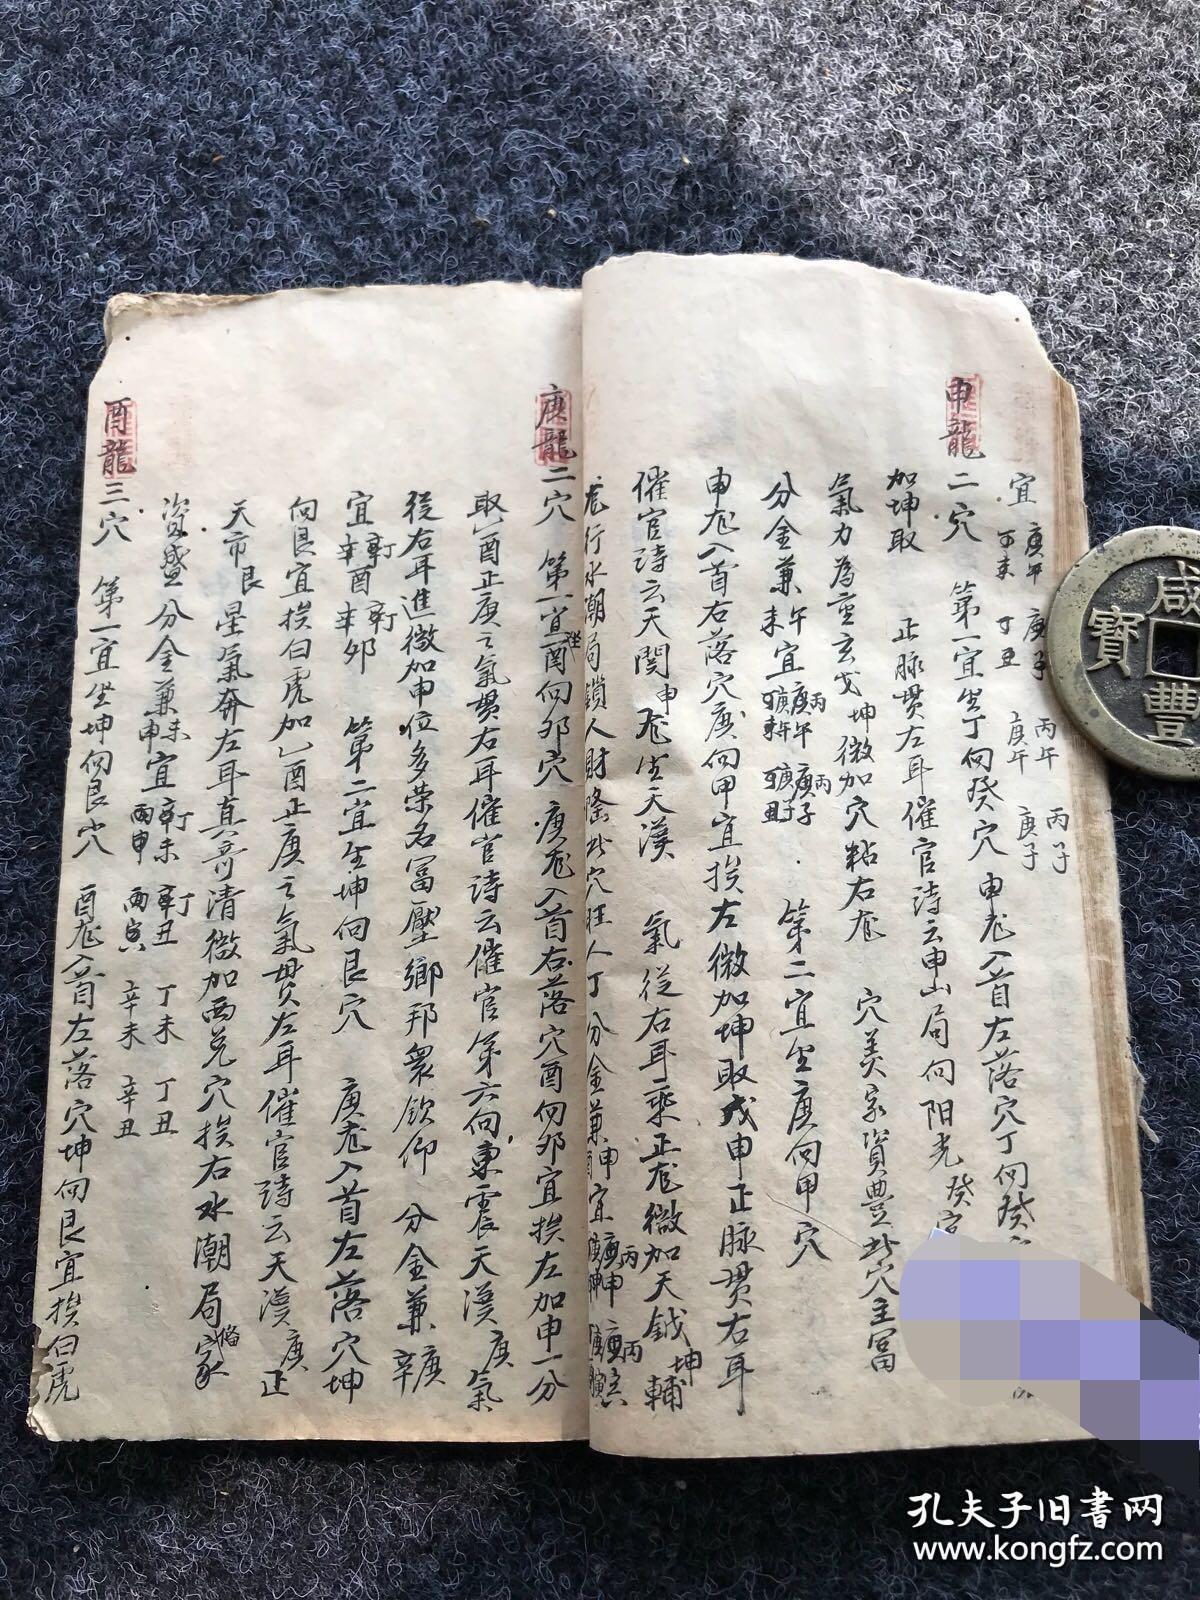 宜 庚午 丁未 庚子 丁丑 丙午 庚午 丙子 庚子
申龍二穴 第一宜坐丁向癸穴 申龙入首左落穴丁向癸
加坤取 正脉贯左耳催官詩云申山局向阳光癸
氣力為重玄戈坤微加穴粘右龙 穴美家資豊此穴主富
分金兼午未宜 第二宜坐庚向甲穴
申龙入首右落穴庚向甲宜挨左微加坤取戌申正脉贯右耳
催官詩云天関申龙生天漢 氣從右耳乘正龙微加天鉞坤輔
龙行水潮局鎖人財隆此穴旺人丁 分金兼申酉宜
庚龍二穴 第一宜坐酉向卯穴 庚龙入首右落穴酉向卯宜挨左加申一分
取酉正庚之氣贯右耳催官詩云催官第六向東震天漢庚氣
從右耳進微加申位多荣名冨壓鄉邦衆欽仰 分金兼庚辛
宜 辛酉 辛卯 第二宜坐坤向艮穴 庚龙入首左落穴坤
向艮宜挨白虎加乙酉正庚之氣贯左耳催官詩云天漢庚正
天市艮星氣奔左耳真奇清微加西兑穴挨右水潮局家
資盛 分金兼未申宜 辛未 丙申 辛丑 丙寅 丁未 辛未 丁丑 辛丑
酉龍三穴 第一宜坐坤向艮穴 酉龙入首左落穴坤向艮宜挨白虎
咸豐寶
孔夫子旧書网
www.kongfz.com